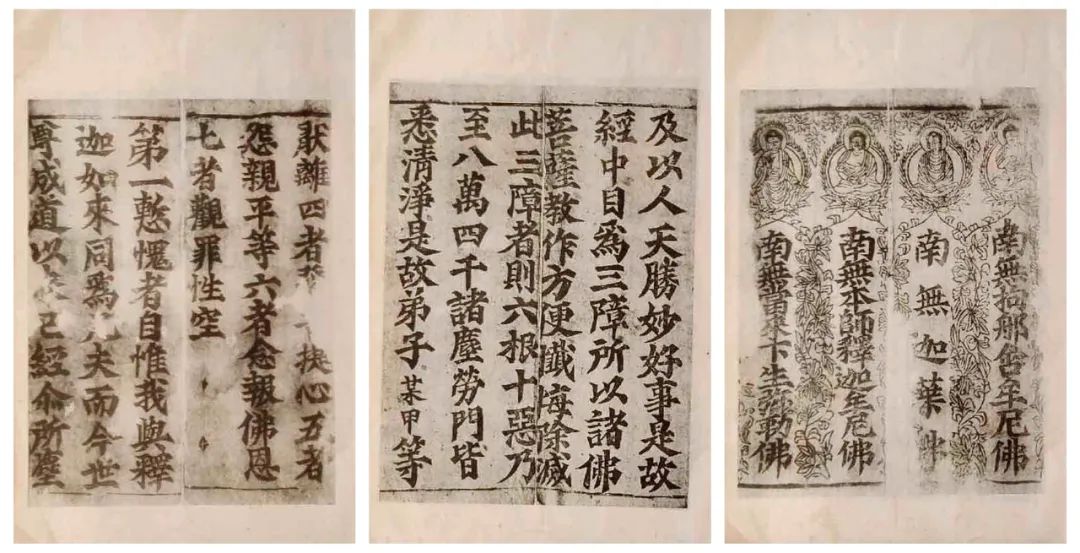 厭離四者發提心五者
怨親平等六者念報佛恩
七者觀罪性空
第一慙愧者自惟我與釋
迦如來同爲凡夫而今世
尊成道以來已經尒所塵
及以人天勝妙好事是故
經中目爲三障所以諸佛
菩薩教作方便懺悔除滅
此三障者則六根十惡乃
至八萬四千諸塵勞門皆
悉清淨是故弟子某甲等
南無拘那含牟尼佛
南無迦葉佛
南無本師釋迦牟尼佛
南無當來下生弥勒佛